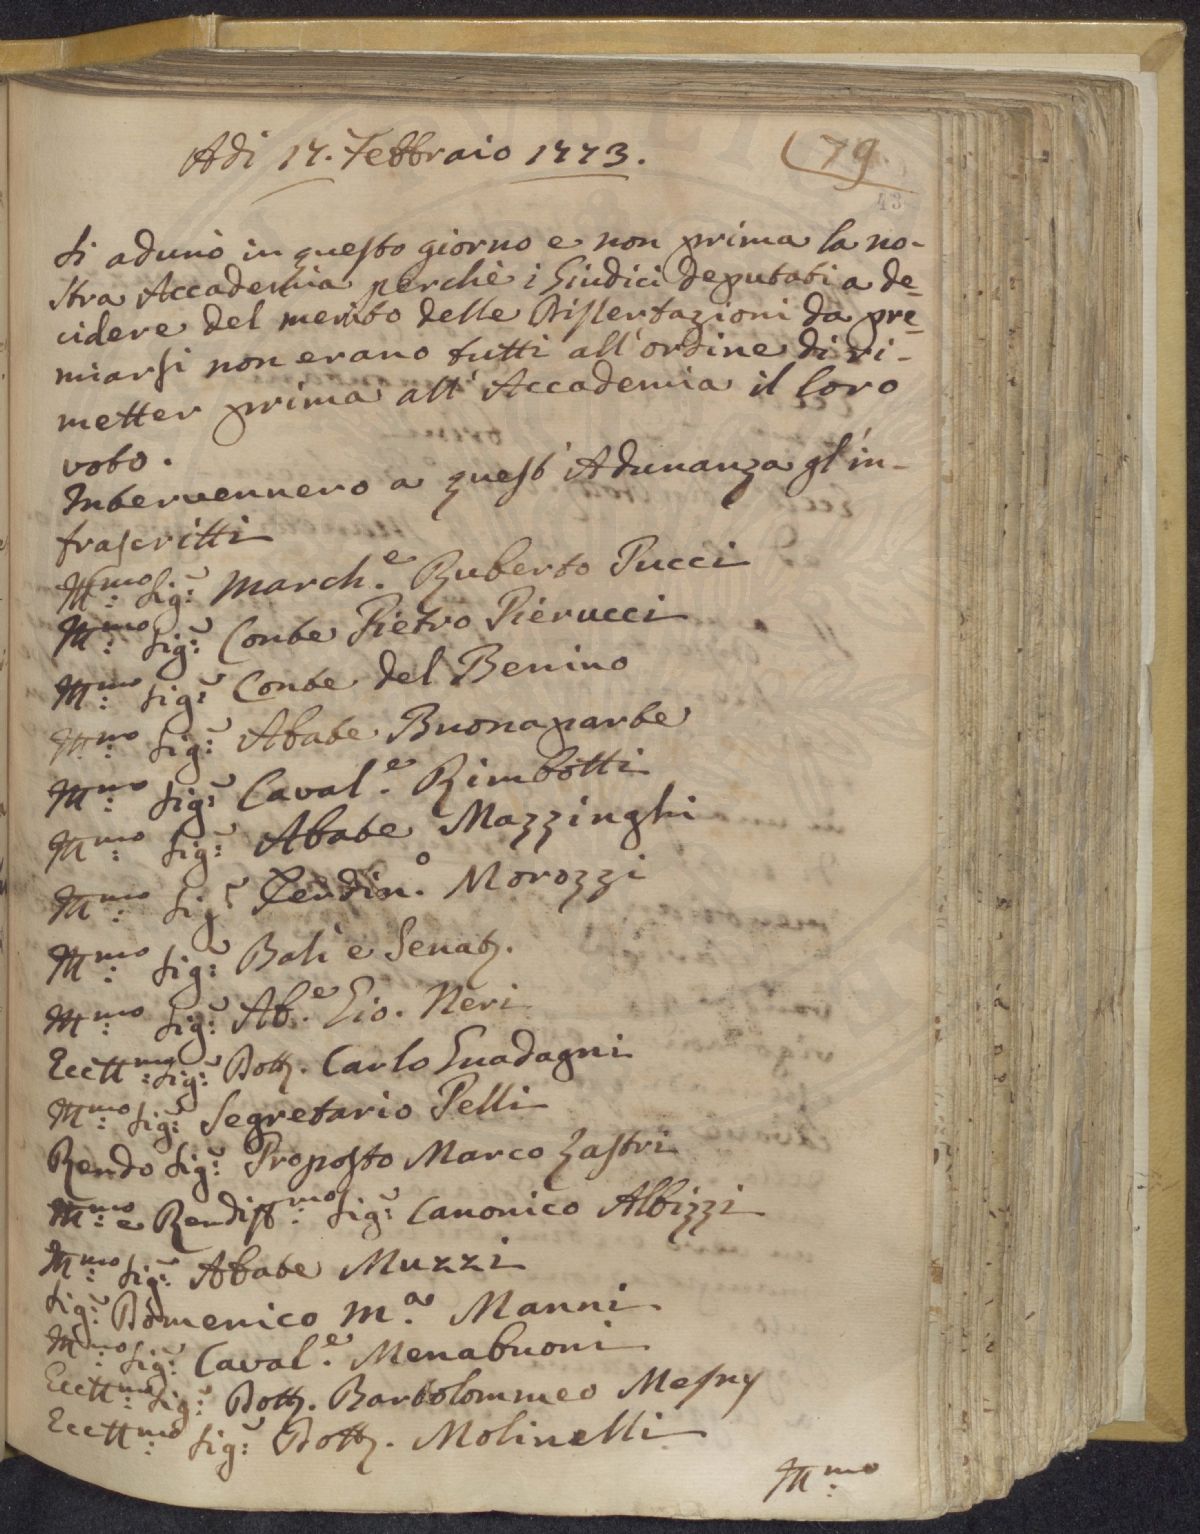 Adi 17. Febbraio 1773.
79
43
Si adunò in questo giorno e non prima la no-
stra Accademia perchè i Giudici deputati a de-
cidere del merito delle Dissertazioni da pre-
miarsi non erano tutti all'ordine di ri-
metter prima all'Accademia il loro
voto.
Intervennero a quest'Adunanza gl'in-
frascritti
Ill.mo Sig.r March.e Ruberto Pucci
Ill.mo Sig.r Conte Pietro Pierucci
Ill.mo Sig.r Conte del Benino
Ill.mo Sig.r Abate Buonaparte
Ill.mo Sig.r Caval.e Rimbotti
Ill.mo Sig.r Abate Mazzinghi
Ill.mo Sig.r Ferdin.o Morozzi
Ill.mo Sig.r Balì e Senat.
Ill.mo Sig.r Ab.e Gio. Neri
Eccll.mo Sig.r Dott. Carlo Guadagni
Ill.mo Sig.r Segretario Pelli
Rendo Sig.r Proposto Marco Lastri
Ill.mo e Rendiss.mo Sig.r Canonico Albizzi
Ill.mo Sig.r Abate Muzzi
Sig.r Domenico M.a Manni
Ill.mo Sig.r Caval.e Menabuoni
Eccll.mo Sig.r Dott. Bartolommeo Mesny
Eccll.mo Sig.r Dott. Molinelli
Ill.mo